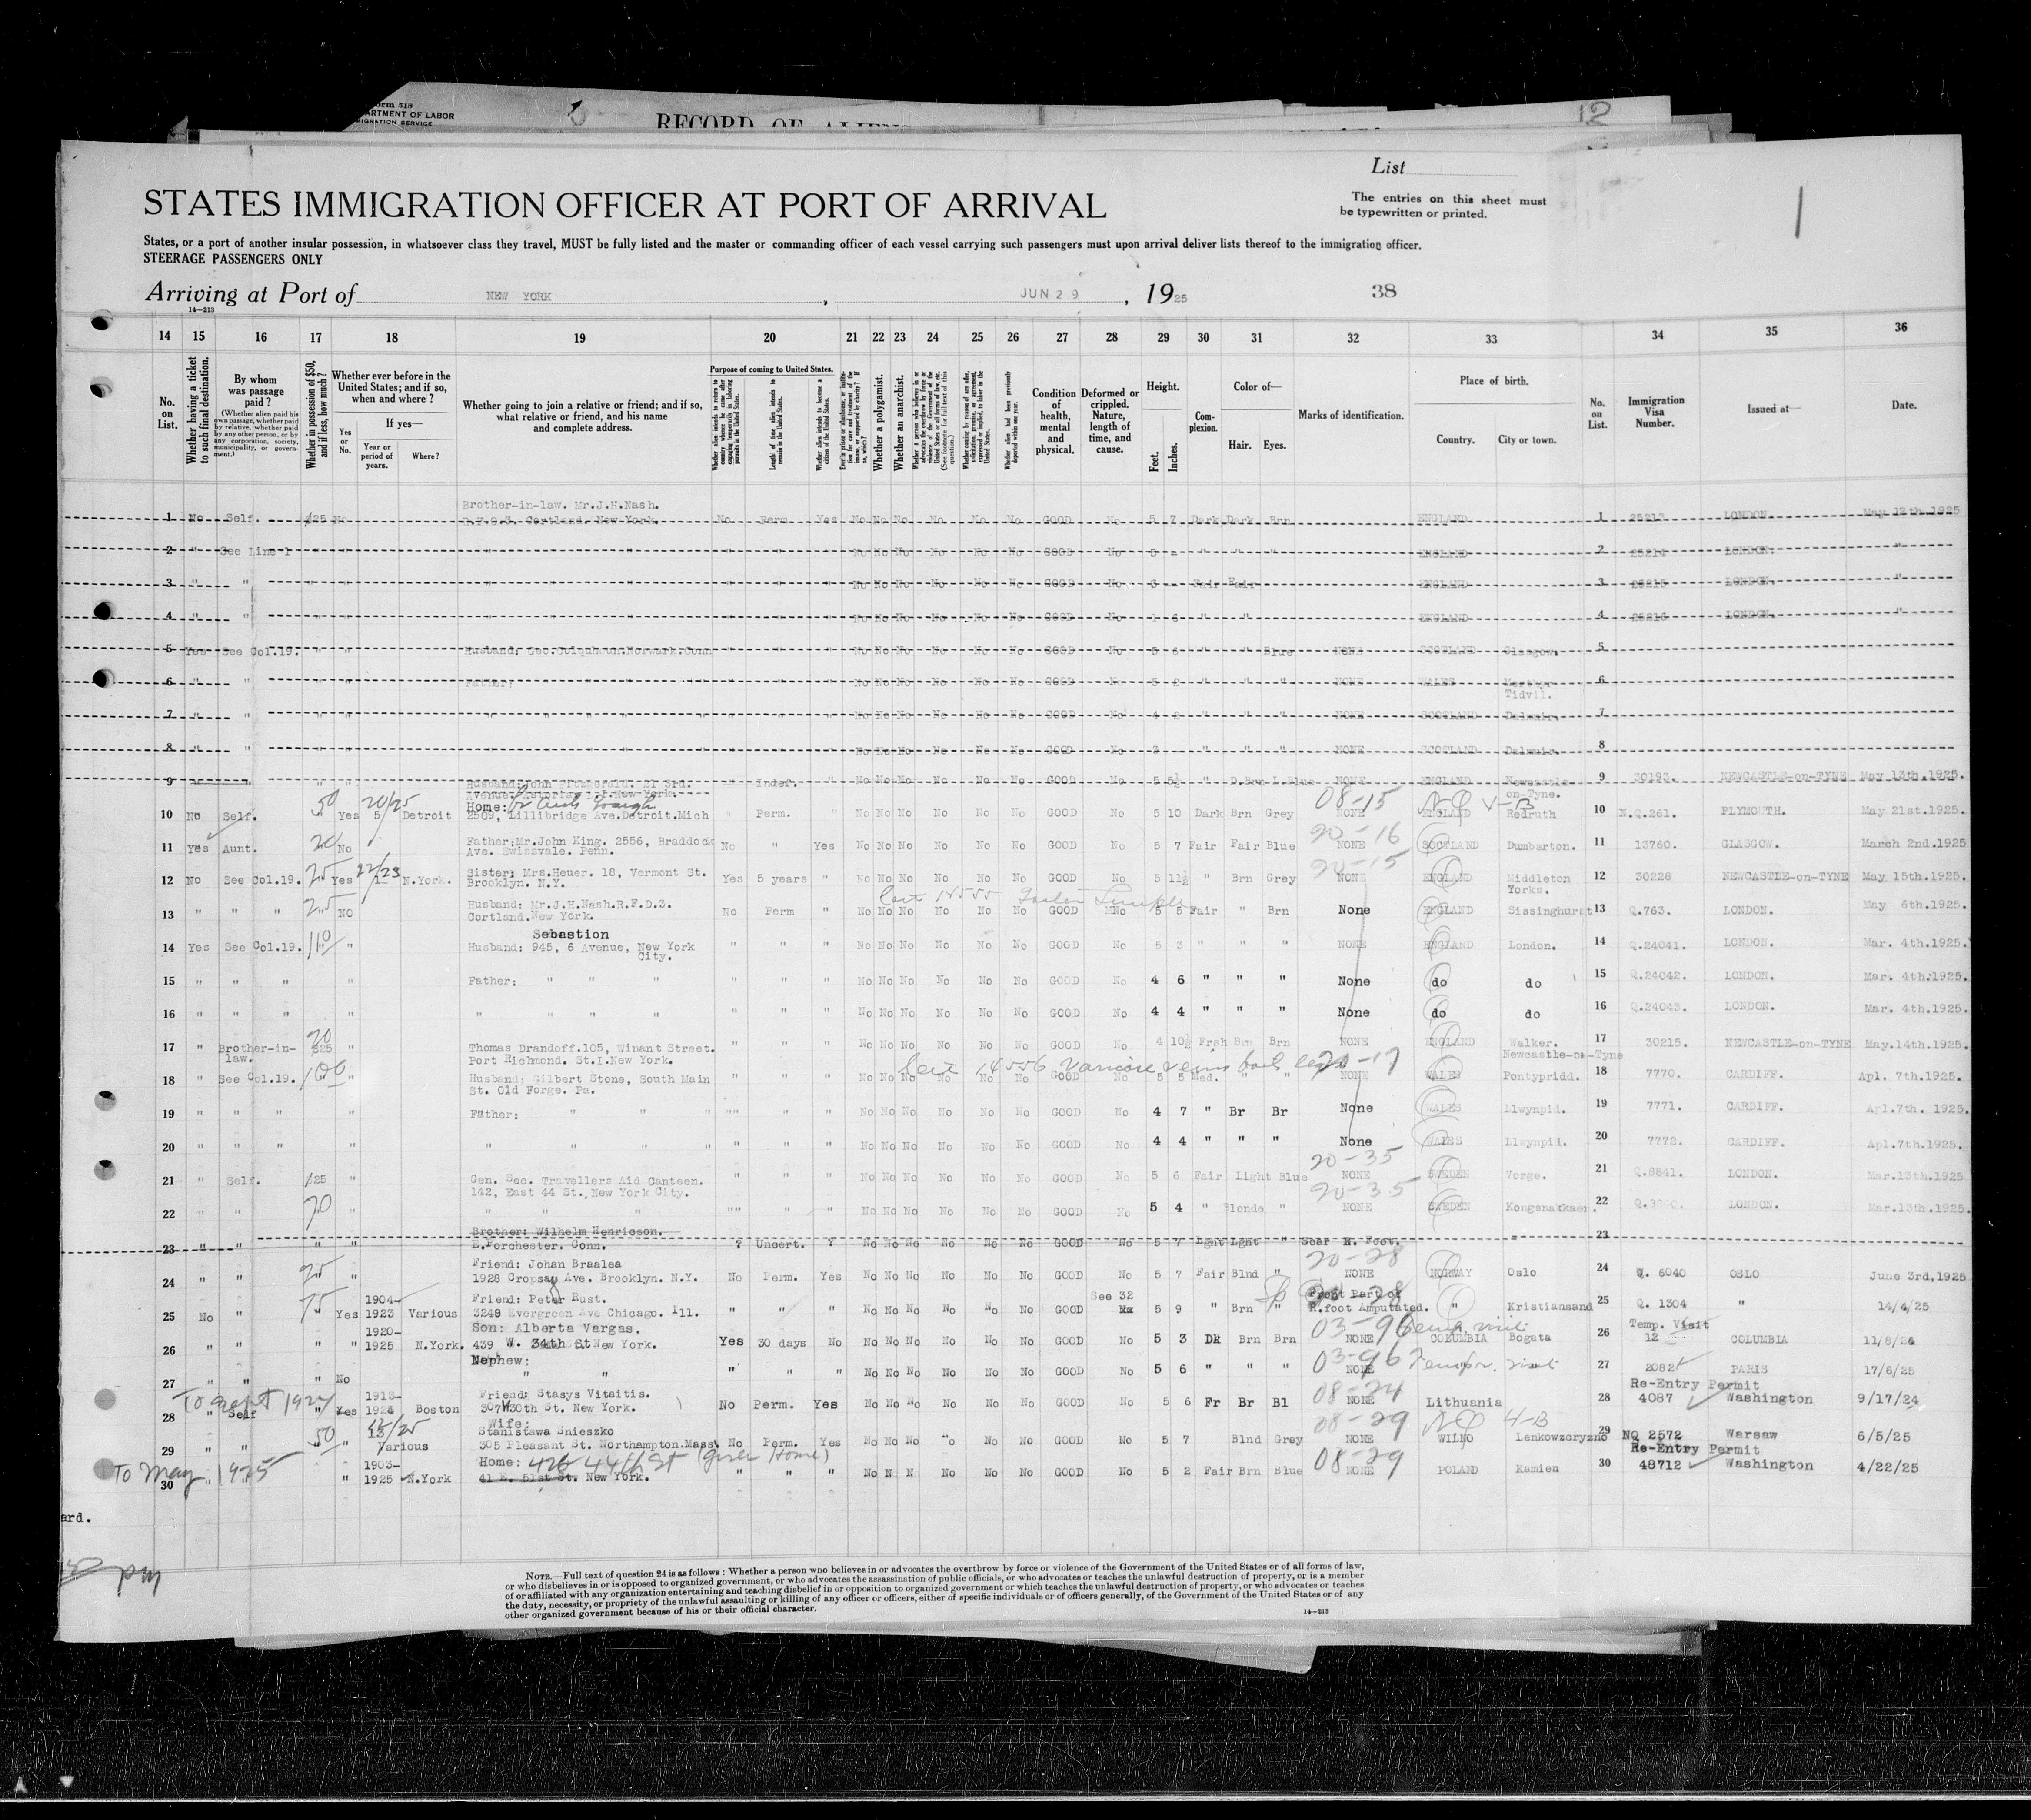 Form 518
DEPARTMENT OF LABOR
IMMIGRATION SERVICE
RECORD OF ALIENS
12
List
STATES IMMIGRATION OFFICER AT PORT OF ARRIVAL
The entries on this sheet must
be typewritten or printed.
1
States, or a port of another insular possession, in whatsoever class they travel, MUST be fully listed and the master or commanding officer of each vessel carrying such passengers must upon arrival deliver lists thereof to the immigration officer.
STEERAGE PASSENGERS ONLY
Arriving at Port of NEW YORK, JUN 29, 1925 38
14—213
14 15 16 17 18 19 20 21 22 23 24 25 26 27 28 29 30 31 32 33 34 35 36
No. on List.
Whether having a ticket to such final destination.
By whom was passage paid?
(Whether alien paid his own passage, whether paid by relative, whether paid by any other person, or by any corporation, society, municipality, or government.)
Whether in possession of $50, and if less, how much?
Whether ever before in the United States; and if so, when and where?
If yes—
Yes or No.
Year or period of years.
Where?
Whether going to join a relative or friend; and if so, what relative or friend, and his name and complete address.
Purpose of coming to United States.
Whether a polygamist.
Whether an anarchist.
Condition of health, mental and physical.
Deformed or crippled. Nature, length of time, and cause.
Height.
Feet. Inches.
Complexion.
Color of—
Hair. Eyes.
Marks of identification.
Place of birth.
Country. City or town.
No. on List.
Immigration Visa Number.
Issued at—
Date.
Brother-in-law. Mr.J.H.Nash.
1 No Self. 25 No Cortland. New York. No Perm Yes No No No No No No GOOD No 5 7 Dark Dark Brn ENGLAND 1 25213 LONDON. May 12th.1925
2 " See Line 1 " " " " " " " " No No No No No No GOOD No 5 - " " " ENGLAND 2 25214 LONDON. "
3 " " " " " " " " " " No No No No No No GOOD No 3 - Fair Fair ENGLAND 3 25215 LONDON. "
4 " " " " " " " " " No No No No No No GOOD No 1 6 " " ENGLAND 4 25216 LONDON. "
5 Yes See Col.19. " " Husband. Geo.Colquhoun.Norwark.Conn " " " No No No No No No GOOD No 5 6 " " Blue NONE SCOTLAND Glasgow. 5
6 " " " " Father: " " " " " " No No No No No No GOOD No 5 2 " " " NONE WALES Merthyr Tidvil. 6
7 " " " " " " " " " " " " No No No No No No GOOD No 4 2 " " " NONE SCOTLAND Dalmuir. 7
8 " " " " " " " " " " " " No No No No No No GOOD No 3 - " " " NONE SCOTLAND Dalmuir. 8
9 " " " " Husband:John Fitzgerald. 21 3rd. " Indef. " No No No No No No GOOD No 5 5½ " D.Brn L.Blue NONE ENGLAND Newcastle 9 30193. NEWCASTLE-on-TYNE May 13th.1925.
on-Tyne.
50 20/25 Home: 08-15 NQ V-B
10 No Self. Yes 5 Detroit 2509, Lillibridge Ave.Detroit.Mich " Perm. " No No No No No No GOOD No 5 10 Dark Brn Grey NONE ENGLAND Redruth 10 N.Q.261. PLYMOUTH. May 21st.1925.
20 Father:Mr.John King. 2556, Braddock 20-16
11 Yes Aunt. No Ave. Swissvale. Penn. No " Yes No No No No No No GOOD No 5 7 Fair Fair Blue NONE SCOTLAND Dumbarton. 11 13760. GLASGOW. March 2nd.1925.
25 22/23 Sister: Mrs.Heuer. 18, Vermont St. 20-15
12 No See Col.19. Yes N.York. Brooklyn. N.Y. Yes 5 years " No No No No No No GOOD No 5 11½ " Brn Grey NONE ENGLAND Middleton Yorks. 12 30228 NEWCASTLE-on-TYNE May 15th.1925.
25 Husband: Mr.J.H.Nash.R.F.D.3. Cert 14555
13 " " " " NO Cortland.New York. No Perm " No No No No No No GOOD No 5 5 Fair " Brn None ENGLAND Sissinghurst 13 Q.763. LONDON. May 6th.1925.
Sebastion
14 Yes See Col.19. 110 " Husband: 945, 6 Avenue, New York City. " " " No No No No No No GOOD No 5 3 " " " NONE ENGLAND London. 14 Q.24041. LONDON. Mar. 4th.1925.
15 " " " " Father: " " " " " " No No No No No No GOOD No 4 6 " " " None do do 15 Q.24042. LONDON. Mar. 4th.1925.
16 " " " " " " " " " " " No No No No No No GOOD No 4 4 " " " None do do 16 Q.24043. LONDON. Mar. 4th.1925.
20
17 " Brother-in-law. $25 " Thomas Drandoff.105, Winant Street. Port Richmond. St.I.New York. " " " No No No No No No GOOD No 4 10½ Frsh Brn Brn NONE ENGLAND Walker. Newcastle-on-Tyne 17 30215. NEWCASTLE-on-TYNE May.14th.1925.
Cert 14556 Varicose veins both legs 20-17
18 " See Col.19. 100 " Husband: Gilbert Stone, South Main St. Old Forge. Pa. " " " No No No No No No GOOD No 5 5 Med. " " NONE WALES Pontypridd. 18 7770. CARDIFF. Apl. 7th.1925.
19 " " " " Father: " " " "" " " No No No No No No GOOD No 4 7 " Br Br None WALES Llwynpid. 19 7771. CARDIFF. Apl.7th. 1925.
20 " " " " " " " " " " " No No No No No No GOOD No 4 4 " " " None WALES Llwynpid. 20 7772. CARDIFF. Apl.7th.1925.
20-35
21 " Self. 125 " Gen. Sec. Travellers Aid Canteen. 142, East 44 St.,New York City. " " " No No No No No No GOOD No 5 6 Fair Light Blue NONE SWEDEN Vorge. 21 Q.8841. LONDON. Mar.13th.1925.
20-35
22 " " 70 " " " " "" " " No No No No No No GOOD No 5 4 " Blonde " NONE SWEDEN Kongsnakkaer. 22 LONDON. Mar.13th.1925.
Brother: Wilhelm Henricson.
23 " " " " E.Porchester. Conn. ? Uncert. ? No No No No No No GOOD No 5 7 Lght Lght " Scar R. Foot. 23
Friend: Johan Braalea 20-28
24 " " 25 " 1928 Cropsey Ave. Brooklyn. N.Y. No Perm. Yes No No No No No No GOOD No 5 7 Fair Blnd " NONE NORWAY Oslo 24 Q. 6040 OSLO June 3rd,1925
1904- Friend: Peter Rust. See 32 Front Part of
25 No " 75 Yes 1923 Various 3249 Evergreen Ave Chicago. Ill. " " " No No No No No No GOOD 5 9 " Brn R.foot Amputated. " Kristiansand 25 Q. 1304 " 14/4/25
1920- Son: Alberta Vargas, 03-96 Temp visit Temp. Visit
26 " " " " 1925 N.York. 439 W. 34th St New York. Yes 30 days No No No No No No No GOOD No 5 3 Dk Brn Brn NONE COLUMBIA Bogata 26 12 COLUMBIA
Nephew: 03-96
27 " " " No " " " " " No No No No No No GOOD No 5 6 " " " NONE 27 2082 PARIS 17/6/25
To Sept 1924 1913- Friend: Stasys Vitaitis. 08-24 Re-Entry Permit
28 " Self " Yes 1924 Boston 307W30th St. New York. No Perm. Yes No No No No No No GOOD No 5 6 Fr Br Bl NONE Lithuania 28 4087 Washington 9/17/24
Wife:
50 13/25 Stanistawa Snieszko 08-29 NQ 4-B
29 " " " Various 305 Pleasant St. Northampton.Mass No Perm. Yes No No No No No No GOOD No 5 7 Blnd Grey NONE WILNO Lenkowzoryzno 29 NQ 2572 Warsaw 6/5/25
To May 1925 1903- Home: 426 44th St (Girls Home) 08-29 Re-Entry Permit
30 " 1925 N.York 41 E. 51st St. New York. " " " No N N No No No GOOD No 5 2 Fair Brn Blue NONE POLAND Kamien 30 48712 Washington 4/22/25
ard.
pm
NOTE.—Full text of question 24 is as follows: Whether a person who believes in or advocates the overthrow by force or violence of the Government of the United States or of all forms of law,
or who disbelieves in or is opposed to organized government, or who advocates the assassination of public officials, or who advocates or teaches the unlawful destruction of property, or is a member
of or affiliated with any organization entertaining and teaching disbelief in or opposition to organized government or which teaches the unlawful destruction of property, or who advocates or teaches
the duty, necessity, or propriety of the unlawful assaulting or killing of any officer or officers, either of specific individuals or of officers generally, of the Government of the United States or of any
other organized government because of his or their official character.
14—213